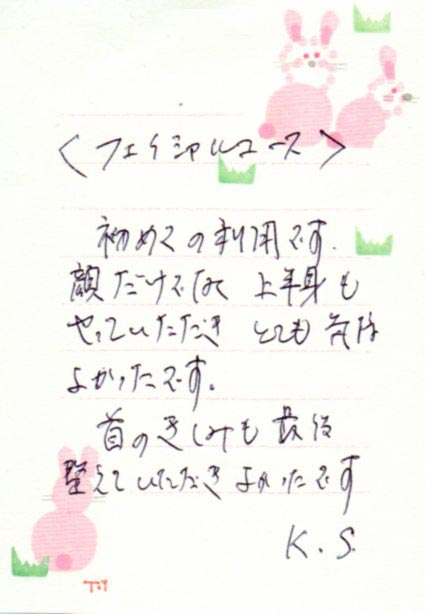 〈フェイシャルコース〉
初めての利用です.
顔だけでなく 上半身も
やっていただき とても 気持
よかったです。
首のきしみも 最後
整えていただき よかったです
K.S.